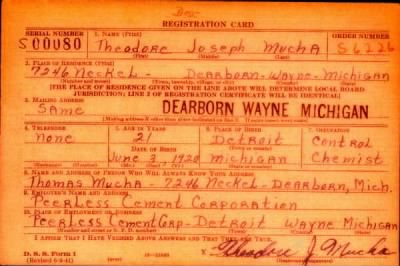 REGISTRATION CARD
SERIAL NUMBER 1. NAME (Print) ORDER NUMBER
S00080 Theodore Joseph Mucha S6226
(First) (Middle) (Last)
2. PLACE OF RESIDENCE (Print)
7246 Neckel - Dearborn - Wayne - Michigan
(Number and street) (Town, township, village, or city) (County) (State)
[THE PLACE OF RESIDENCE GIVEN ON THE LINE ABOVE WILL DETERMINE LOCAL BOARD
JURISDICTION; LINE 2 OF REGISTRATION CERTIFICATE WILL BE IDENTICAL]
3. MAILING ADDRESS
Same DEARBORN WAYNE MICHIGAN
4. TELEPHONE 5. AGE IN YEARS 6. PLACE OF BIRTH 7. OCCUPATION
None 21 Detroit Control
DATE OF BIRTH
June 3 1920 Michigan Chemist
8. NAME AND ADDRESS OF PERSON WHO WILL ALWAYS KNOW YOUR ADDRESS
Thomas Mucha - 7246 Neckel - Dearborn, Mich.
9. EMPLOYER'S NAME AND ADDRESS
Peerless Cement Corporation
10. PLACE OF EMPLOYMENT OR BUSINESS
Peerless Cement Corp - Detroit Wayne Michigan
I AFFIRM THAT I HAVE VERIFIED ABOVE ANSWERS AND THAT THEY ARE TRUE.
D. S. S. Form 1
(Revised 6-9-41) Theodore J. Mucha